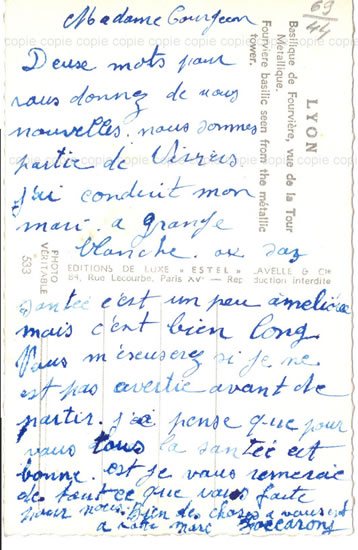 Madame Gourgeon
Deuse mots pour
vous donnez de nous
nouvelles. nous sommes
partie de
j'ai conduit mon
mari. a grange
blanche.
santée c'est un peu amélioré
mais c'est bien long
Vous m'escuserez si je ne
est pas avertie avant de
partir. j'ai pense que pour
vous tous la santée est
bonne. est je vous remercie
de tout ce que vous faite
pour nous. Bien des choses a vous
a votre mari
69/44
LYON
Basilique de Fourvière, vue de la Tour
Métallique.
Fourviere basilic seen from the métallic
tower.
PHOTO
VÉRITABLE
533
EDITIONS DE LUXE « ESTEL » LAVELLE & Cie
84, Rue Lecourbe, Paris XVe — Reproduction interdite
copie copie copie copie copie copie copie copie
copie copie copie copie copie copie copie copie